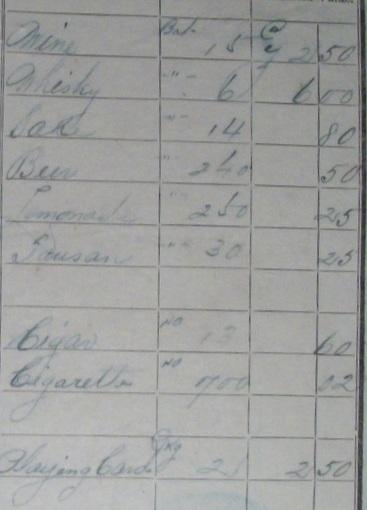 Wine Bot. 15 @ 2 50
Whisky "" 6 6 00
Sake "" 14 80
Beer "" 240 50
Lemonade "" 250 25
Tansan "" 30 25
Cigar NO 13 60
Cigarette NO 700 02
Playing Cards Pkg 2 50